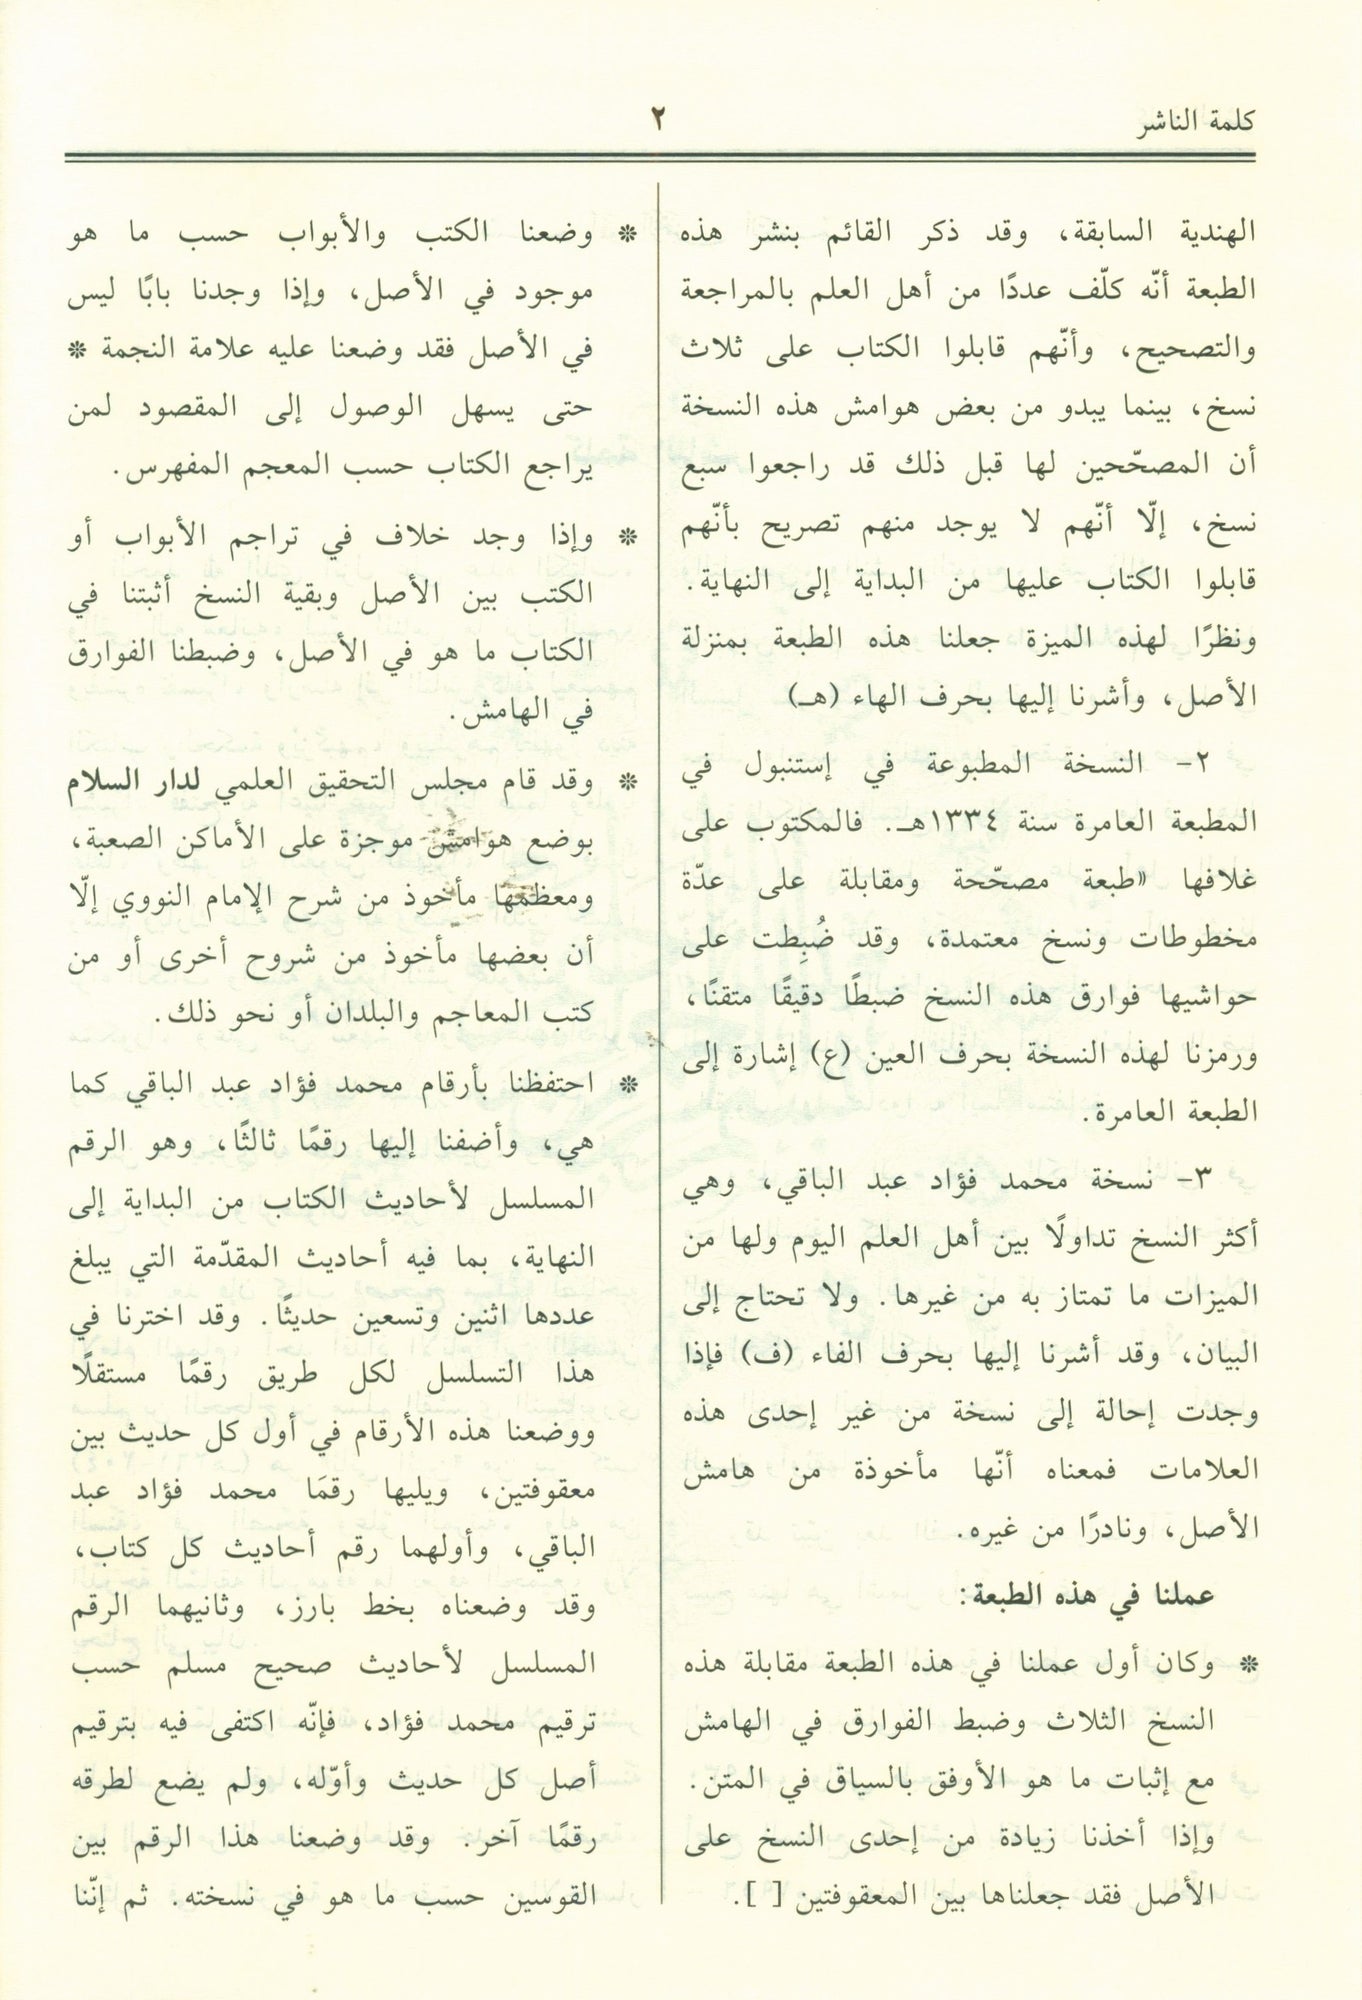 كلمة الناشر
٢
الهندية السابقة، وقد ذكر القائم بنشر هذه
الطبعة أنّه كلّف عددًا من أهل العلم بالمراجعة
والتصحيح، وأنّهم قابلوا الكتاب على ثلاث
نسخ، بينما يبدو من بعض هوامش هذه النسخة
أن المصحّحين لها قبل ذلك قد راجعوا سبع
نسخ، إلّا أنّهم لا يوجد منهم تصريح بأنّهم
قابلوا الكتاب عليها من البداية إلى النهاية.
ونظرًا لهذه الميزة جعلنا هذه الطبعة بمنزلة
الأصل، وأشرنا إليها بحرف الهاء (هـ)
٢- النسخة المطبوعة في إستنبول في
المطبعة العامرة سنة ١٣٣٤هـ. فالمكتوب على
غلافها «طبعة مصحّحة ومقابلة على عدّة
مخطوطات ونسخ معتمدة، وقد ضُبِطت على
حواشيها فوارق هذه النسخ ضبطًا دقيقًا متقنًا،
ورمزنا لهذه النسخة بحرف العين (ع) إشارة إلى
الطبعة العامرة.
٣- نسخة محمد فؤاد عبد الباقي، وهي
أكثر النسخ تداولًا بين أهل العلم اليوم ولها من
الميزات ما تمتاز به من غيرها. ولا تحتاج إلى
البيان، وقد أشرنا إليها بحرف الفاء (ف) فإذا
وجدت إحالة إلى نسخة من غير إحدى هذه
العلامات فمعناه أنّها مأخوذة من هامش
الأصل، ونادرًا من غيره.
عملنا في هذه الطبعة:
❊ وكان أول عملنا في هذه الطبعة مقابلة هذه
النسخ الثلاث وضبط الفوارق في الهامش
مع إثبات ما هو الأوفق بالسياق في المتن.
وإذا أخذنا زيادة من إحدى النسخ على
الأصل فقد جعلناها بين المعقوفتين [ ].
❊ وضعنا الكتب والأبواب حسب ما هو
موجود في الأصل، وإذا وجدنا بابًا ليس
في الأصل فقد وضعنا عليه علامة النجمة ❊
حتى يسهل الوصول إلى المقصود لمن
يراجع الكتاب حسب المعجم المفهرس.
❊ وإذا وجد خلاف في تراجم الأبواب أو
الكتب بين الأصل وبقية النسخ أثبتنا في
الكتاب ما هو في الأصل، وضبطنا الفوارق
في الهامش.
❊ وقد قام مجلس التحقيق العلمي لدار السلام
بوضع هوامش موجزة على الأماكن الصعبة،
ومعظمها مأخوذ من شرح الإمام النووي إلّا
أن بعضها مأخوذ من شروح أخرى أو من
كتب المعاجم والبلدان أو نحو ذلك.
❊ احتفظنا بأرقام محمد فؤاد عبد الباقي كما
هي، وأضفنا إليها رقمًا ثالثًا، وهو الرقم
المسلسل لأحاديث الكتاب من البداية إلى
النهاية، بما فيه أحاديث المقدّمة التي يبلغ
عددها اثنين وتسعين حديثًا. وقد اخترنا في
هذا التسلسل لكل طريق رقمًا مستقلًا
ووضعنا هذه الأرقام في أول كل حديث بين
معقوفتين، ويليها رقمَا محمد فؤاد عبد
الباقي، وأولهما رقم أحاديث كل كتاب،
وقد وضعناه بخط بارز، وثانيهما الرقم
المسلسل لأحاديث صحيح مسلم حسب
ترقيم محمد فؤاد، فإنّه اكتفى فيه بترقيم
أصل كل حديث وأوّله، ولم يضع لطرقه
رقمًا آخر. وقد وضعنا هذا الرقم بين
القوسين حسب ما هو في نسخته. ثم إنّنا